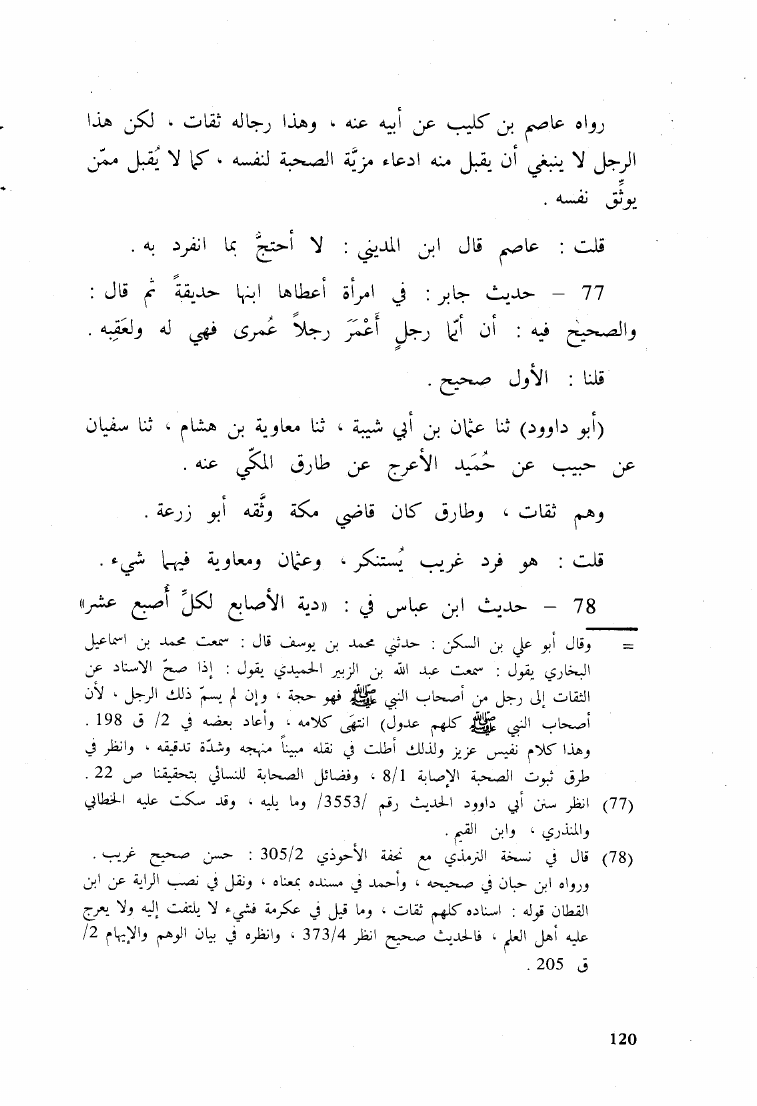 رواه عاصم بن كليب عن أبيه عنه ، وهذا رجاله ثقات ، لكن هذا
الرجل لا ينبغي أن يقبل منه ادعاء مزيَّة الصحبة لنفسه ، كما لا يُقبل ممَّن
يوثِّق نفسه .
قلت : عاصم قال ابن المديني : لا أحتجُّ بما انفرد به .
77 – حديث جابر : في امرأة أعطاها ابنها حديقةً ثم قال :
والصحيح فيه : أن أيّما رجلٍ أَعْمَرَ رجلاً عُمرى فهي له ولعَقِبه .
قلنا : الأول صحيح .
(أبو داوود) ثنا عثمان بن أبي شيبة ، ثنا معاوية بن هشام ، ثنا سفيان
عن حبيب عن حُمَيد الأعرج عن طارق المكّي عنه .
وهم ثقات ، وطارق كان قاضي مكة وثَّقه أبو زرعة .
قلت : هو فرد غريب يُستنكر ، وعثمان ومعاوية فيهما شيء .
78 – حديث ابن عباس في : «دية الأصابع لكلِّ أُصبع عشر»
= وقال أبو علي بن السكن : حدثني محمد بن يوسف قال : سمعت محمد بن اسماعيل
البخاري يقول : سمعت عبد الله بن الزبير الحميدي يقول : إذا صحّ الاسناد عن
الثقات إلى رجل من أصحاب النبي ﷺ فهو حجة ، وإن لم يسمّ ذلك الرجل ، لأن
أصحاب النبي ﷺ كلهم عدول) انتهى كلامه ، وأعاد بعضه في 2/ ق 198 .
وهذا كلام نفيس عزيز ولذلك أطلت في نقله مبيناً منهجه وشدّة تدقيقه ، وانظر في
طرق ثبوت الصحبة الإصابة 8/1 ، وفضائل الصحابة للنسائي بتحقيقنا ص 22 .
(77) انظر سنن أبي داوود الحديث رقم /3553/ وما يليه ، وقد سكت عليه الخطابي
والمنذري ، وابن القيم .
(78) قال في نسخة الترمذي مع تحفة الأحوذي 305/2 : حسن صحيح غريب .
ورواه ابن حبان في صحيحه ، وأحمد في مسنده بمعناه ، ونقل في نصب الراية عن ابن
القطان قوله : اسناده كلهم ثقات ، وما قيل في عكرمة فشيء لا يلتفت إليه ولا يعرج
عليه أهل العلم ، فالحديث صحيح انظر 373/4 ، وانظره في بيان الوهم والإيهام 2/
ق 205 .
120